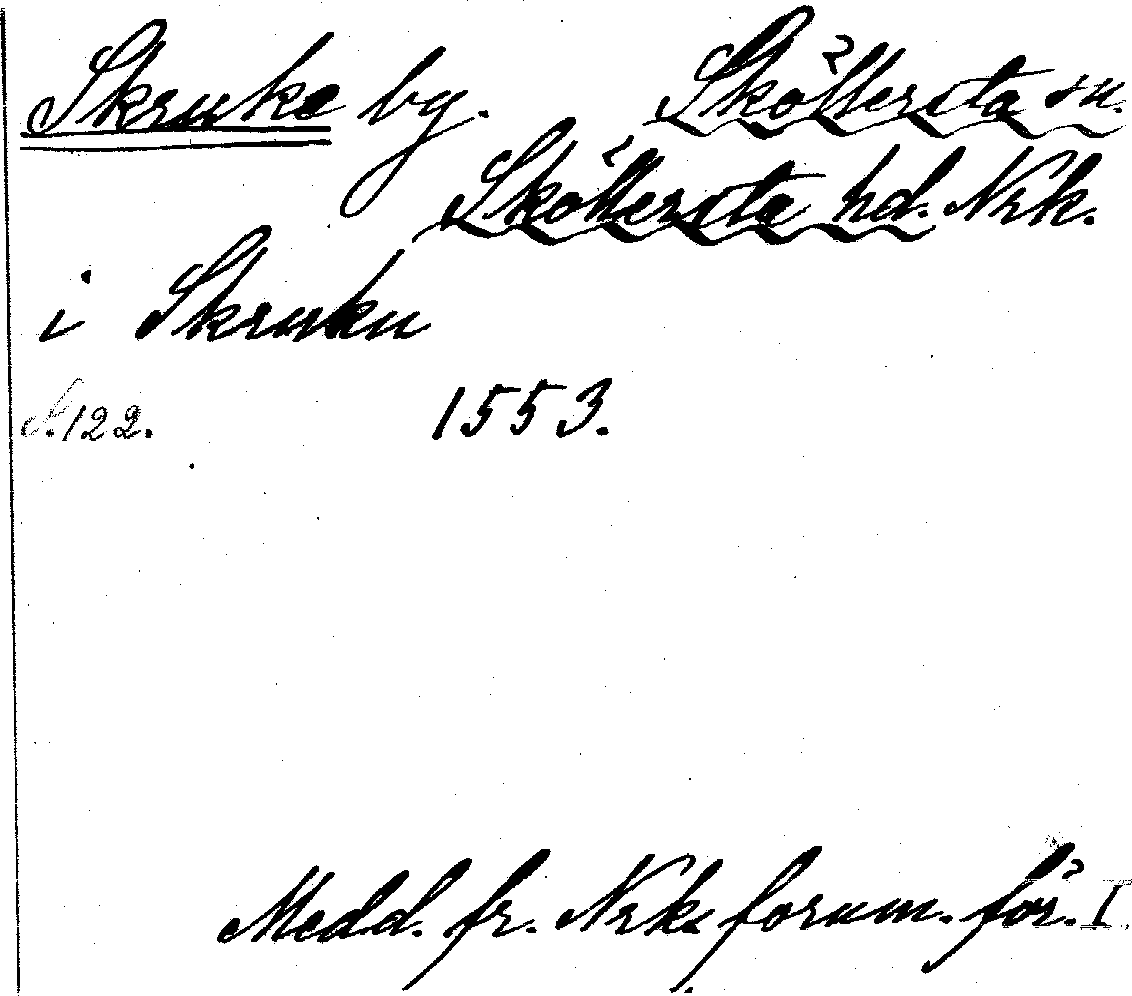 Skruke by. Sköllersta sn.
Sköllersta hd. Nrk.
i Skruku
S. 122. 1553.
Medd. fr. Nrk. fornm. för. I.